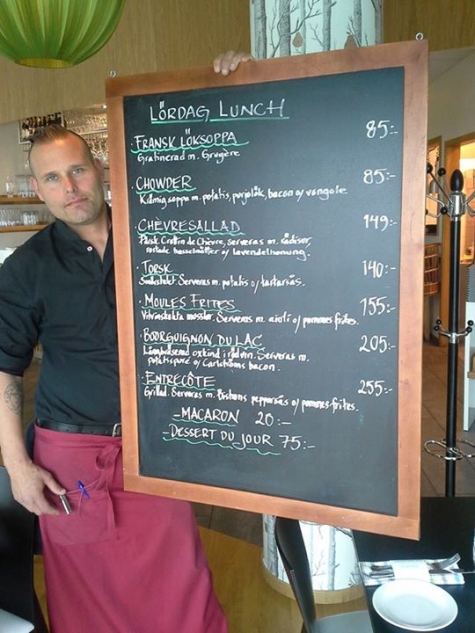 LÖRDAG LUNCH
FRANSK LÖKSOPPA 85:-
Gratinerad m. Gruyère
CHOWDER 85:-
Krämig soppa m. potatis, purjolök, bacon o/ vongole
CHÈVRESALLAD 149:-
Färsk Crottin de Chèvre, serveras m. rädisor,
rostade hasselnötter o/ lavendelhonung.
TORSK 140:-
Serveras m. potatis o/ tartarsås.
MOULES FRITES 155:-
Vitvinskokta musslor. Serveras m. aioli o/ pommes frites.
BOURGUIGNON DU LAC 205:-
Långbräserad oxkind i rödvin. Serveras m.
potatispuré o/ Carlströms bacon.
ENTRECÔTE 255:-
Grillad. Serveras m. Bistrons pepparsås o/ pommes frites.
-MACARON 20:-
-DESSERT DU JOUR 75:-